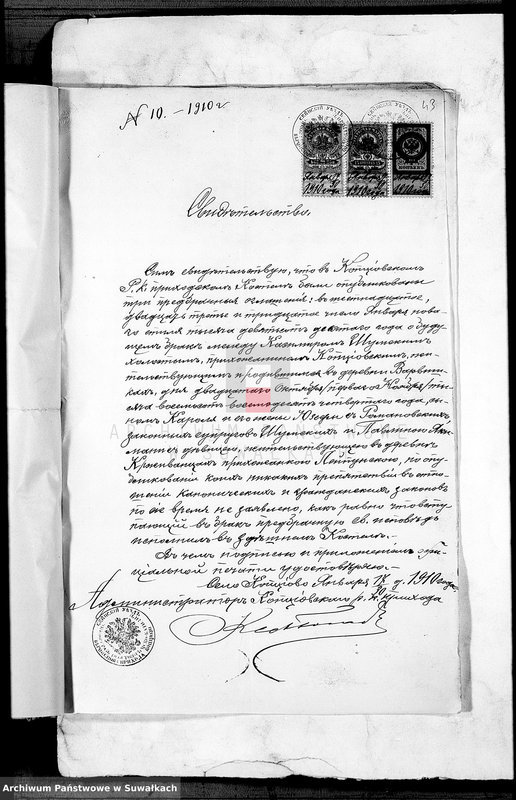 43
N 10. – 1910 г
Свидѣтельство.
Симъ свидѣтельствую, что въ Копціовскомъ
Р. к. приходскомъ Костелѣ были опубликованы
три предбрачныя оглашенія: шестнадцатое,
двадцать третье и тридцатое число Января нова-
го стиля тысяча девятьсотъ десятаго года о буду-
щемъ бракѣ между Казимиромъ Шумскимъ
холостымъ, прихожаниномъ Копціовскимъ, жи-
тельствующимъ и родившимся въ деревнѣ
кахъ, дня двадцатаго Октября /перваго Ноября/ ты-
сяча восемьсотъ восемьдесятъ четвертаго года, сы-
номъ Кароля и его жены Юзефы съ Романовскихъ
законныхъ супруговъ Шумскихъ и
дѣвицею, жительствующею въ деревнѣ
прихожанкою Лейпунскою, по опу-
бликованіи коихъ никакихъ препятствій въ отно-
шеніи каноническихъ и гражданскихъ законовъ
по сіе время не заявлено, какъ равно что всту-
пающій въ бракъ предбрачную св. исповѣдь
исполнилъ въ здѣшнемъ Костелѣ.
Въ чемъ подписью и приложеніемъ оффи-
ціальной печати удостовѣряю.
Село Копціово Января 17 д. 1910 года
Администраторъ Копціовскаго р. к. прихода
1910 года
1910 года
1910 года
Archiwum Państwowe w Suwałkach